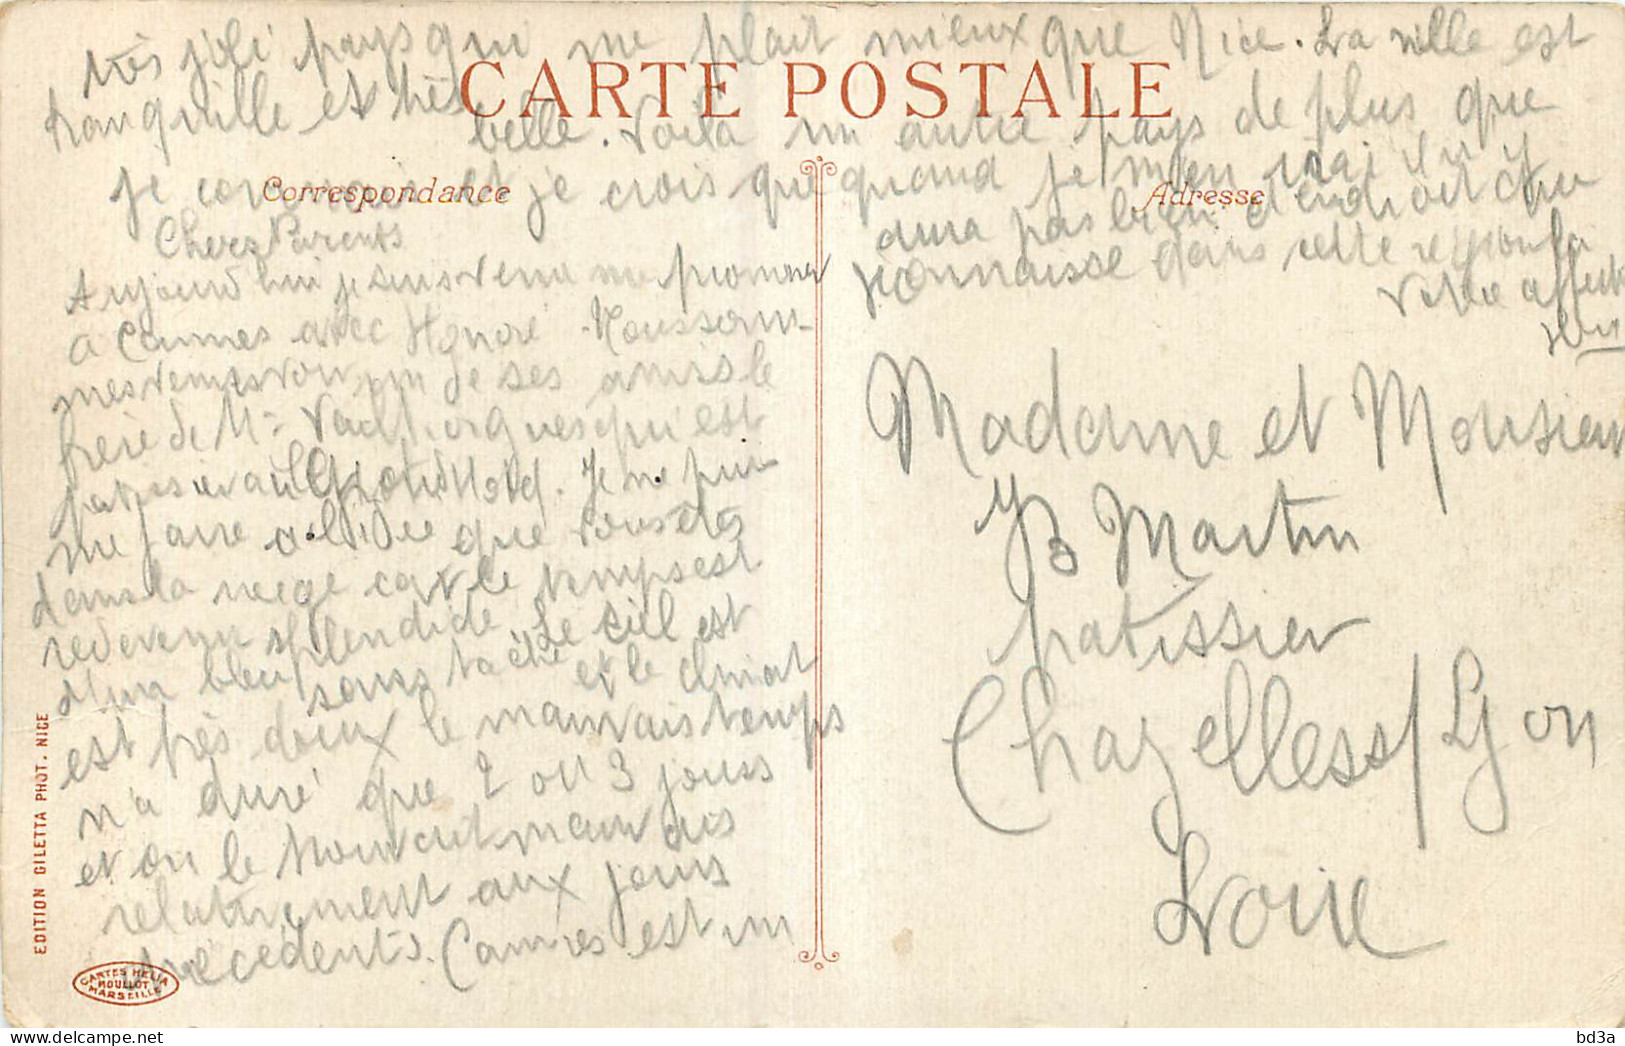 CARTE POSTALE
Correspondance
Adresse
Chers Parents
Aujourd'hui je suis venu me promener
a Cannes avec Honoré. Nous som-
mes venus voir un de ses amis le
frère de Mr qui est
patissier au Grand Hotel. Je ne puis
me faire a l'idée que vous êtes
dans la neige car le temps est
redevenu splendide. Le ciel est
d'un bleu sans tache et le climat
est très doux le mauvais temps
n'a duré que 2 ou 3 jours
et on le trouvait mauvais
relativement aux jours
précédents. Cannes est un
très joli pays qui me plait mieux que Nice. La ville est
tranquille et très belle. Voilà un autre pays de plus que
je connais et je crois que quand je m'en irai il n'y
aura pas bien d'endroit que
je connaisse dans cette région la
Votre affect
Madame et Monsieur
JB Martin
patissier
Chazelles s/ Lyon
Loire
EDITION GILETTA PHOT. NICE
CARTES HELIA
MOULLOT
MARSEILLE
bd3a